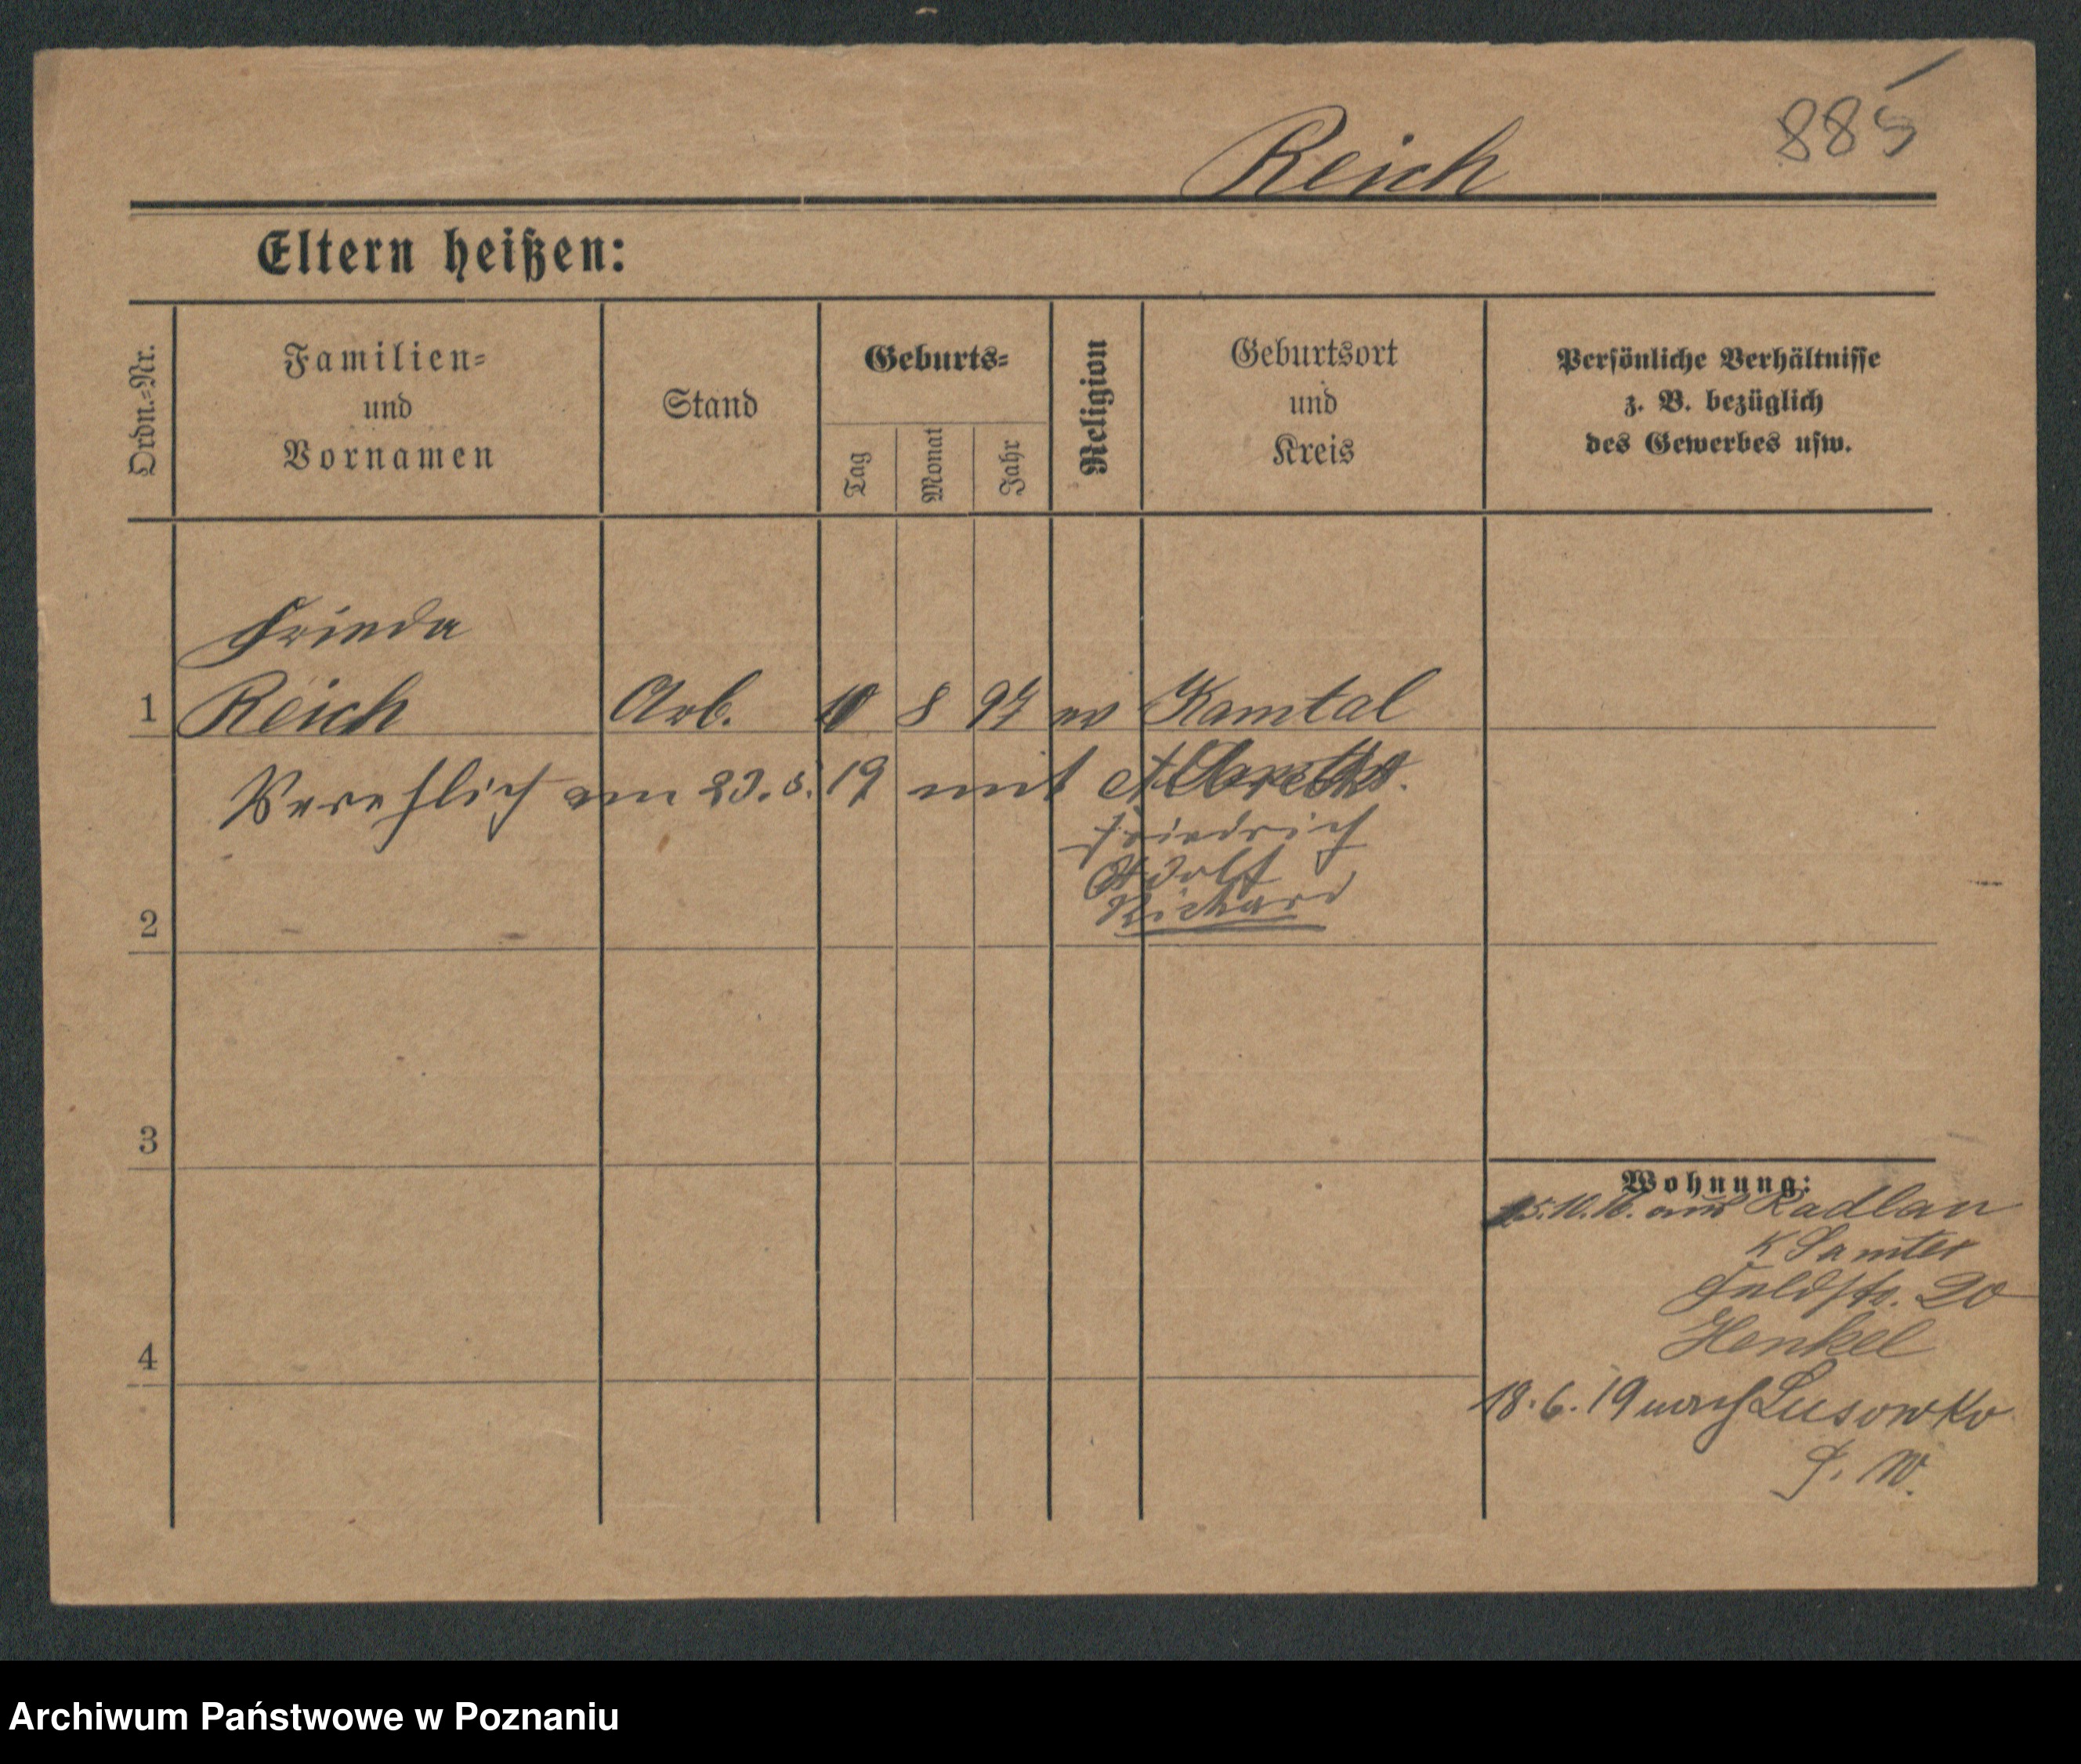 885
Reich
Eltern heißen:
Ordn.-Nr.
Familien-
und
Vornamen
Stand
Geburts-
Tag
Monat
Jahr
Religion
Geburtsort
und
Kreis
Persönliche Verhältnisse
z. B. bezüglich
des Gewerbes usw.
Frieda
1 Reich Arb. 10 8 97 ev Kamtal
Verehlich am 23. 5. 19 mit Albrecht.
Friedrich
Adolf
2 Richard
3
Wohnung:
25.10.16. aus Radlau
K Samter
Feldstr. 20
Henkel
4
18. 6. 19 nach Lusowko
P. W.
Archiwum Państwowe w Poznaniu